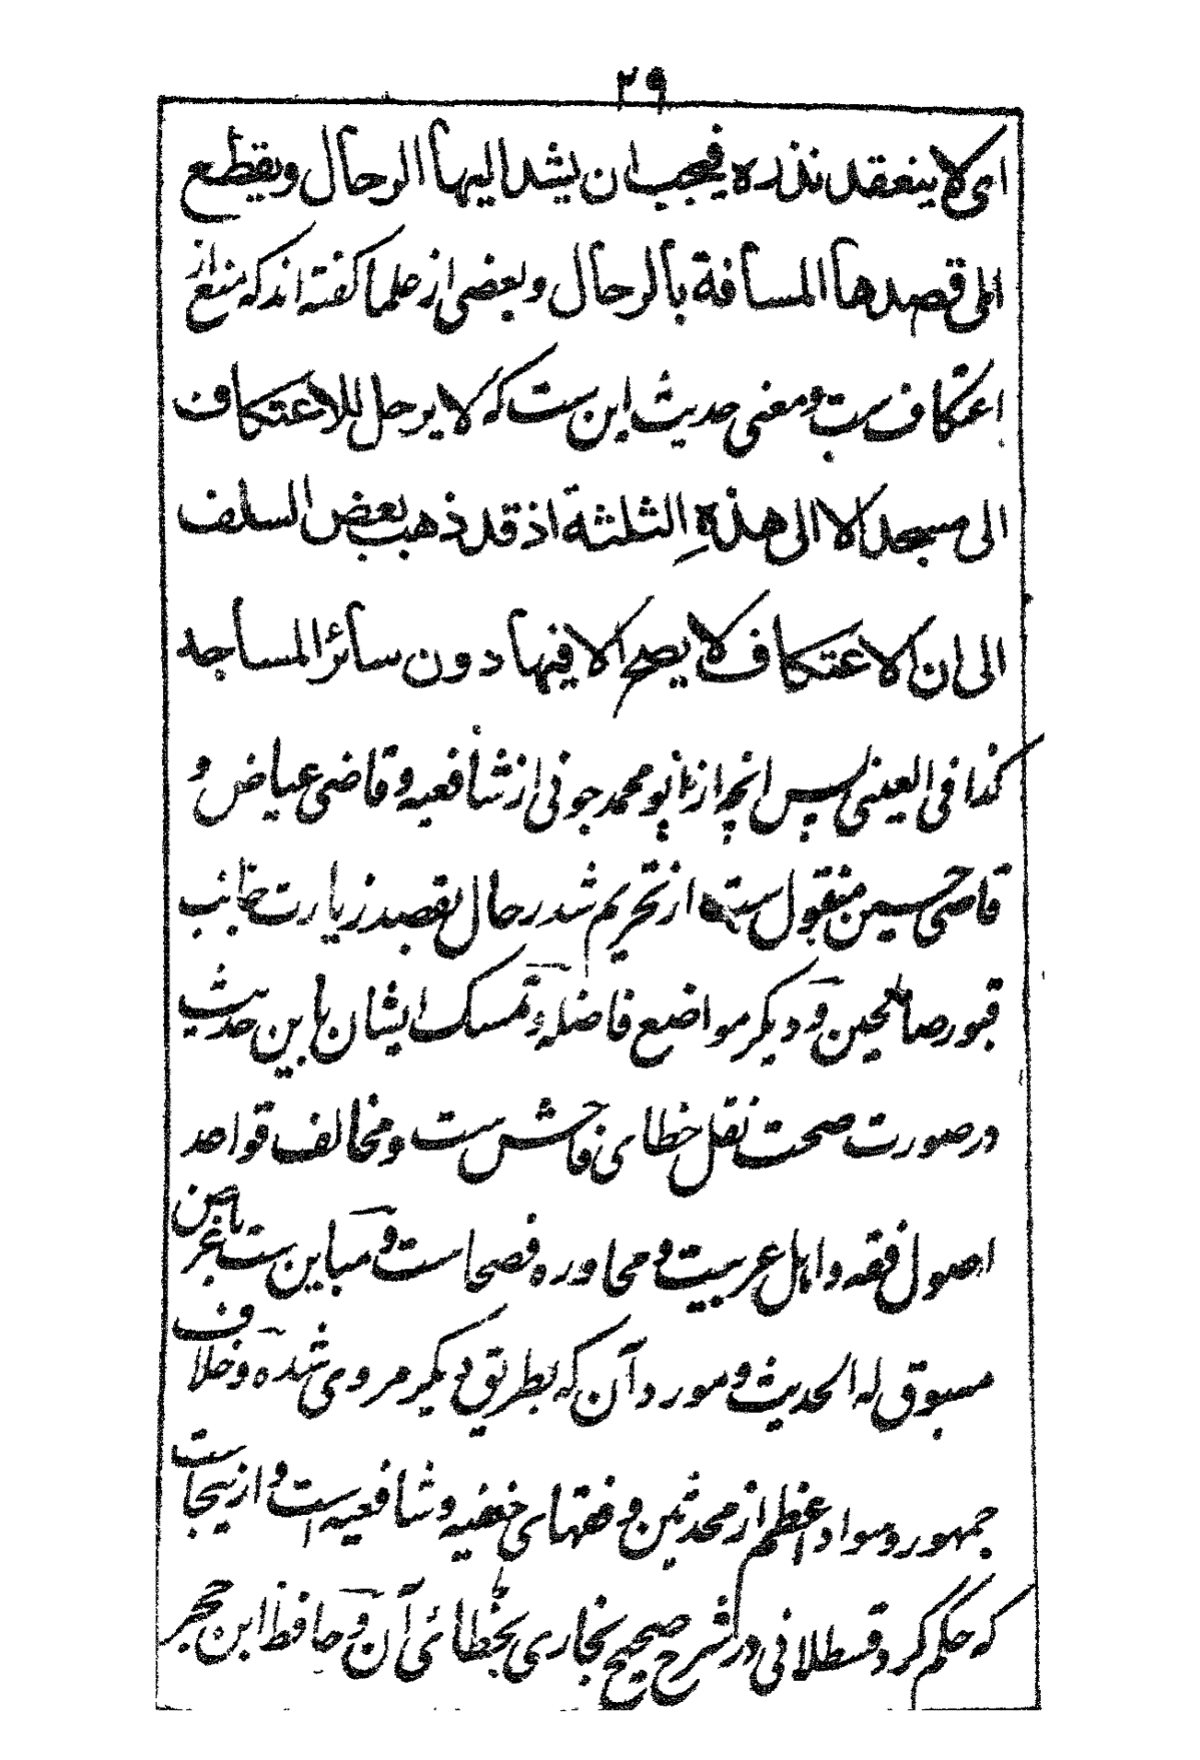 ۲۹
ای لا ینعقد نذره فیجب ان یشد الیها الرحال ویقطع
الی قصدها المسافة بالرحال وبعضی از علما گفته اند که منع از
اعتکاف ست ومعنی حدیث این ست که لا یرحل للاعتکاف
الی مسجد الا الی هذهِ الثلثة اذ قد ذهب بعض السلف
الی ان الاعتکاف لا یصح الا فیها دون سائر المساجد
کذا فی العینی پس انچه از ابو محمد جونی از شافعیه و قاضی عیاض و
قاضی حسین منقول ست از تحریم شد رحال بقصد زیارت جانب
قبور صالحین و دیگر مواضع فاضله و تمسک ایشان باین حدیث
در صورت صحت نقل خطای فاحش ست و مخالف قواعد
اصول فقه و اهل عربیت و محاوره فصحاست و مباین ست بغرض ما
مسبوق له الحدیث و مورد آن که بطریق دیگر مروی شده و خلاف
جمهور و سواد اعظم از محدثین و فقهای حنفیه و شافعیه است و ازینجاست
که حکم کرد قسطلانی در شرح صحیح بخاری بخطائی آن و حافظ ابن حجر